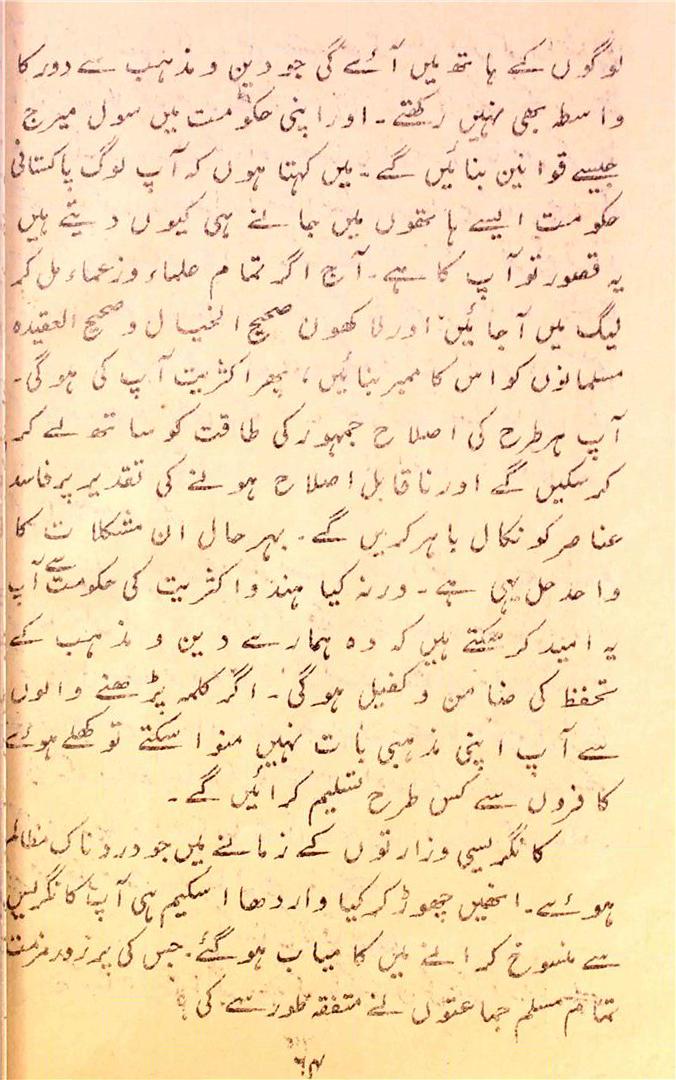 لوگوں کے ہاتھ میں آئے گی جو دین و مذہب سے دور کا
واسطہ بھی نہیں رکھتے۔ اور اپنی حکومت میں سول میرج
جیسے قوانین بنائیں گے۔ میں کہتا ہوں کہ آپ لوگ پاکستانی
حکومت ایسے ہاتھوں میں جانے ہی کیوں دیتے ہیں
یہ قصور تو آپ کا ہے۔ آج اگر تمام علماء و زعماء مل کر
لیگ میں آجائیں اور لاکھون صحیح الخیال و صحیح العقیدہ
مسلمانوں کو اس کا ممبر بنائیں، پھر اکثریت آپ کی ہوگی۔
آپ ہر طرح کی اصلاح جمہور کی طاقت کو ساتھ لے کر
کرسکیں گے اور ناقابل اصلاح ہونے کی تقدیر پر فاسد
عناصر کو نکال باہر کریں گے۔ بہرحال ان مشکلات کا
واحد حل یہی ہے۔ ورنہ کیا ہندو اکثریت کی حکومت سے آپ
یہ امید کر سکتے ہیں کہ وہ ہمارے دین و مذہب کے
تحفظ کی ضامن و کفیل ہوگی۔ اگر کلمہ پڑھنے والوں
سے آپ اپنی مذہبی بات نہیں منوا سکتے تو کھلے ہوئے
کافروں سے کس طرح تسلیم کرائیں گے۔
کانگریسی وزارتوں کے زمانے میں جو دردناک مظالم
ہوئے۔ انھیں چھوڑ کر کیا واردھا اسکیم ہی آپ کانگریس
سے منسوخ کرانے میں کامیاب ہوگئے۔ جس کی پرزور مذمت
تمام مسلم جماعتوں نے متفقہ طور سے کی؟